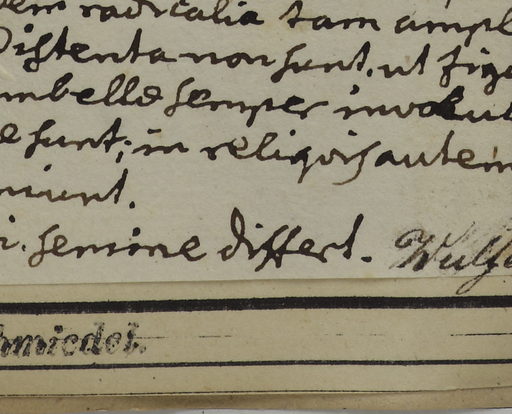 radicalia tam ampl
Distenta non sunt. ut figu
umbellæ semper involut
sunt; in reliqvis autem
niunt.
semine differt. Wulf
hmiedel.